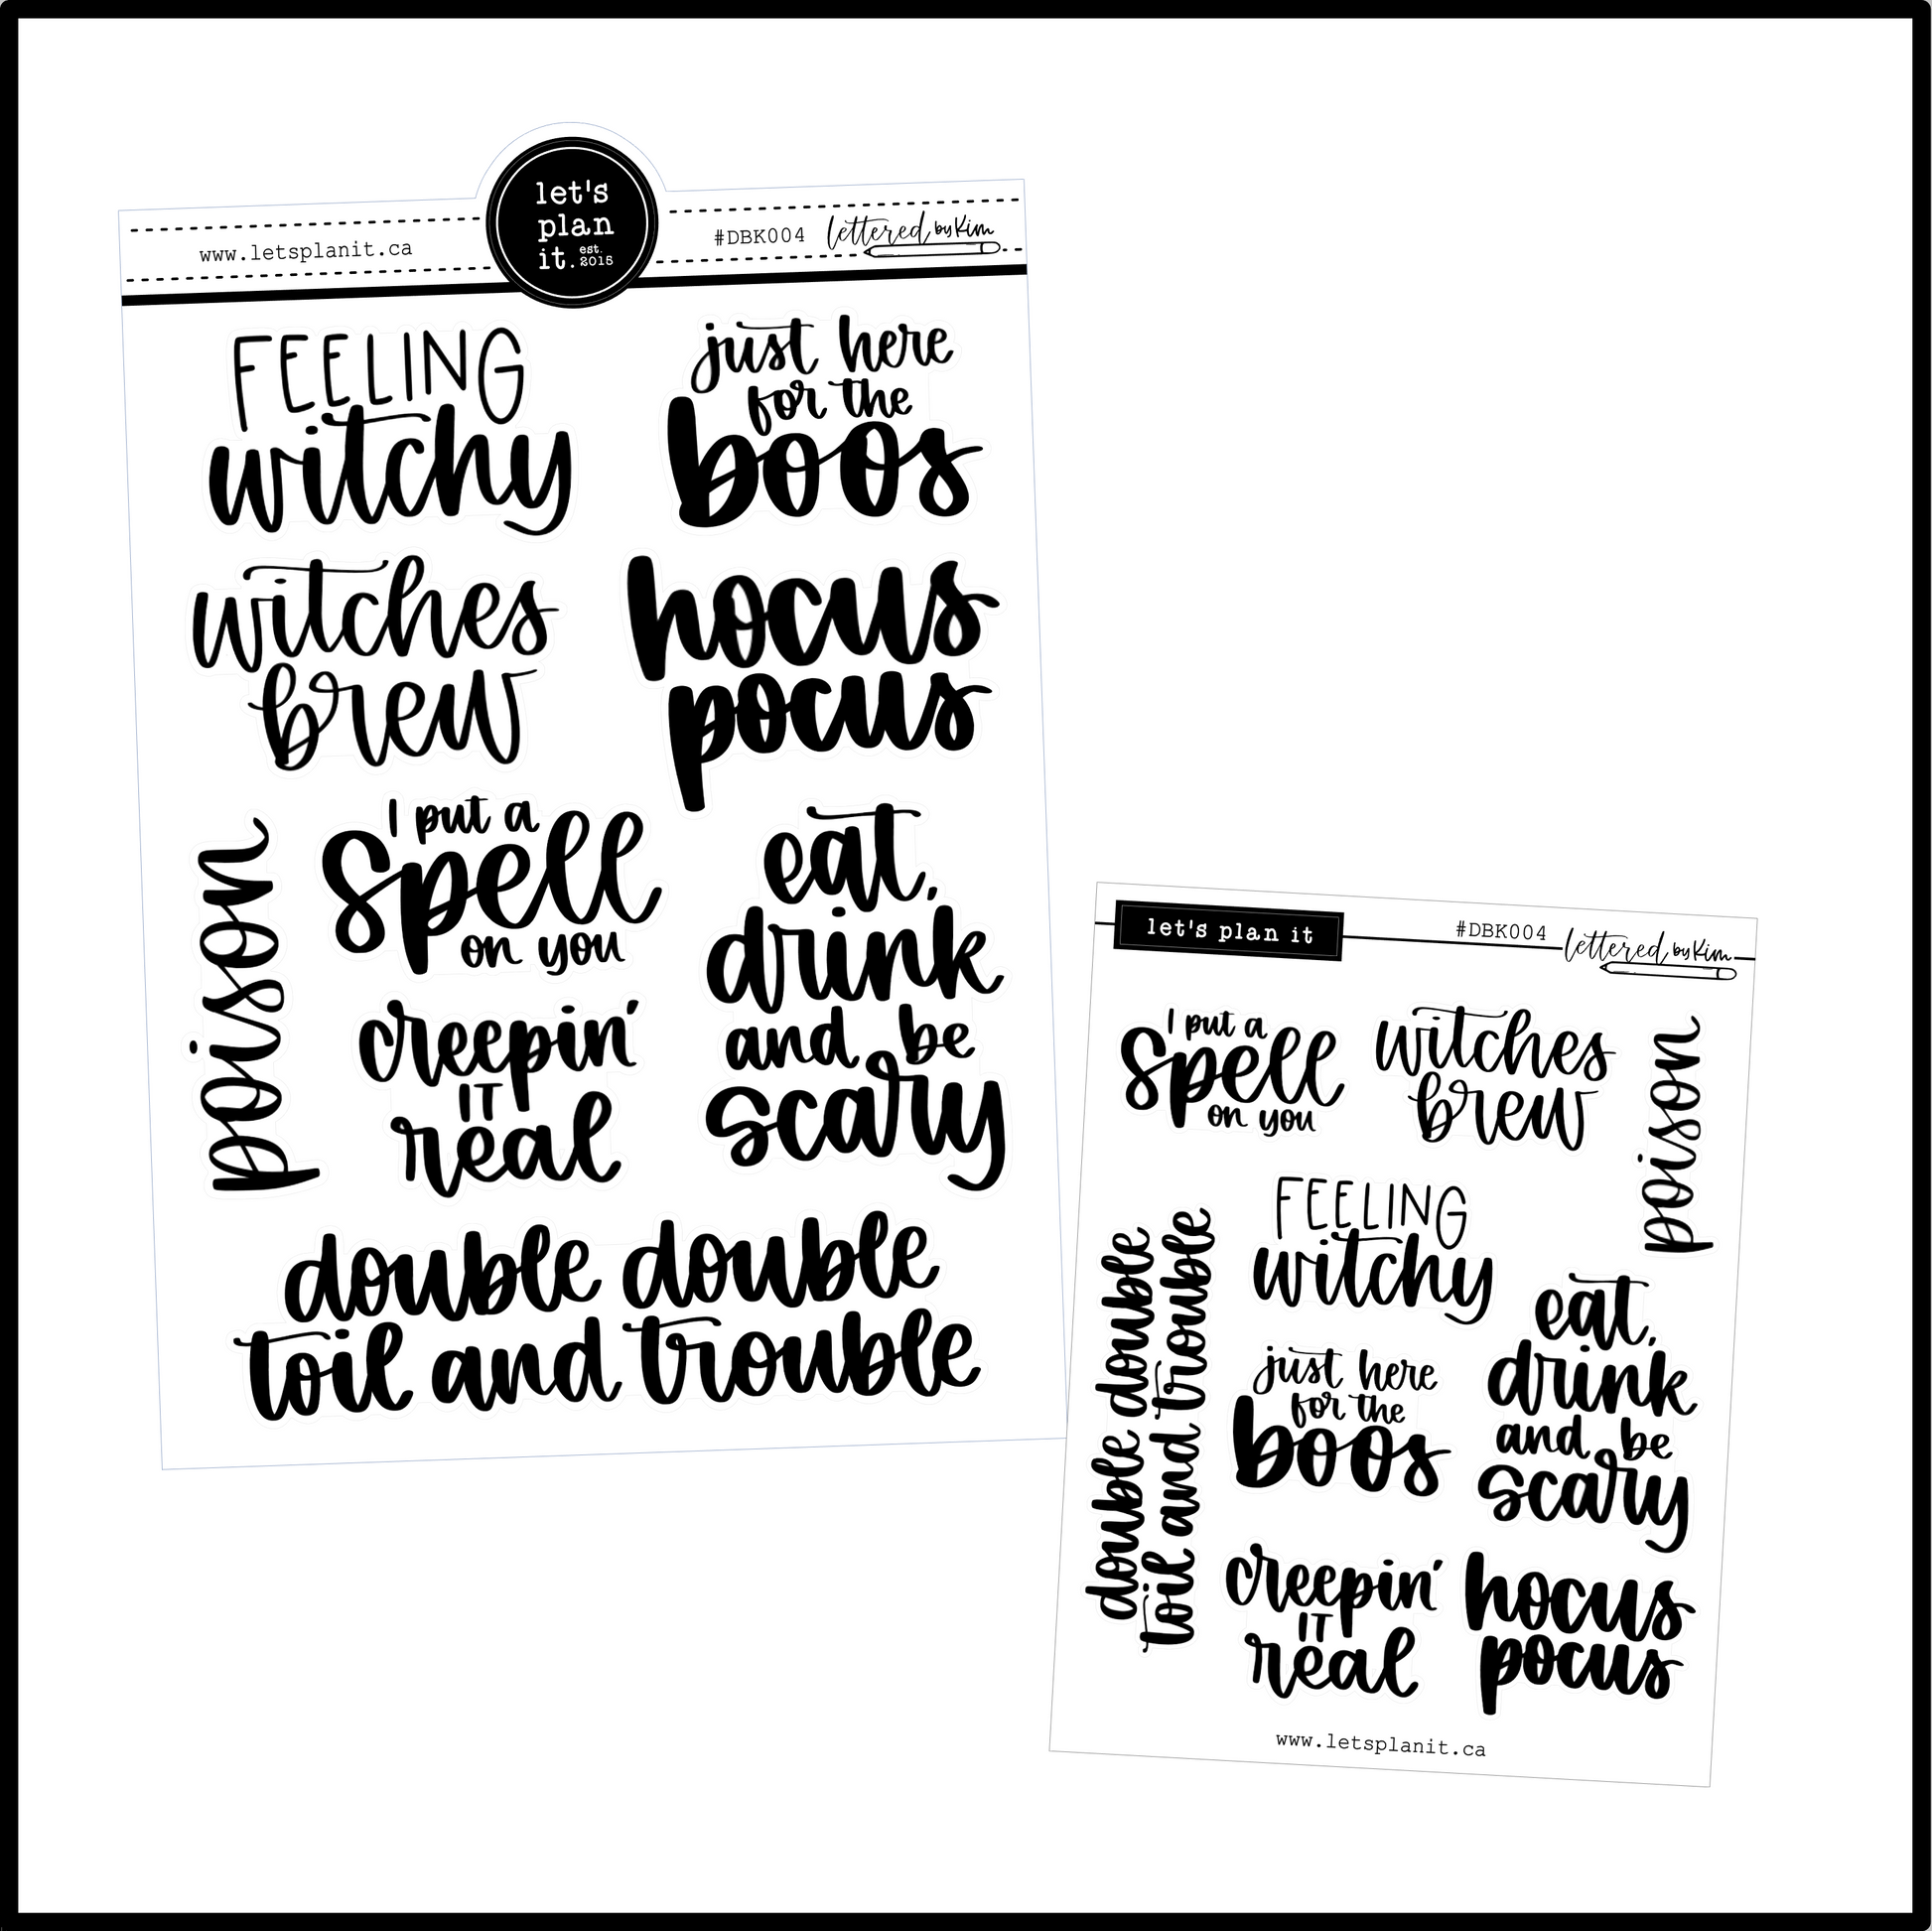 let's
plan
it. est. 2015
www.letsplanit.ca
#DBK004
lettered by Kim
FEELING
witchy
just here
for the
boos
witches
brew
hocus
pocus
poison
I put a
spell
on you
eat,
drink
and be
scary
creepin'
IT
real
double double
toil and trouble
let's plan it
#DBK004
lettered by Kim
I put a
spell
on you
witches
brew
poison
FEELING
witchy
double double
toil and trouble
just here
for the
boos
eat,
drink
and be
scary
creepin'
IT
real
hocus
pocus
www.letsplanit.ca